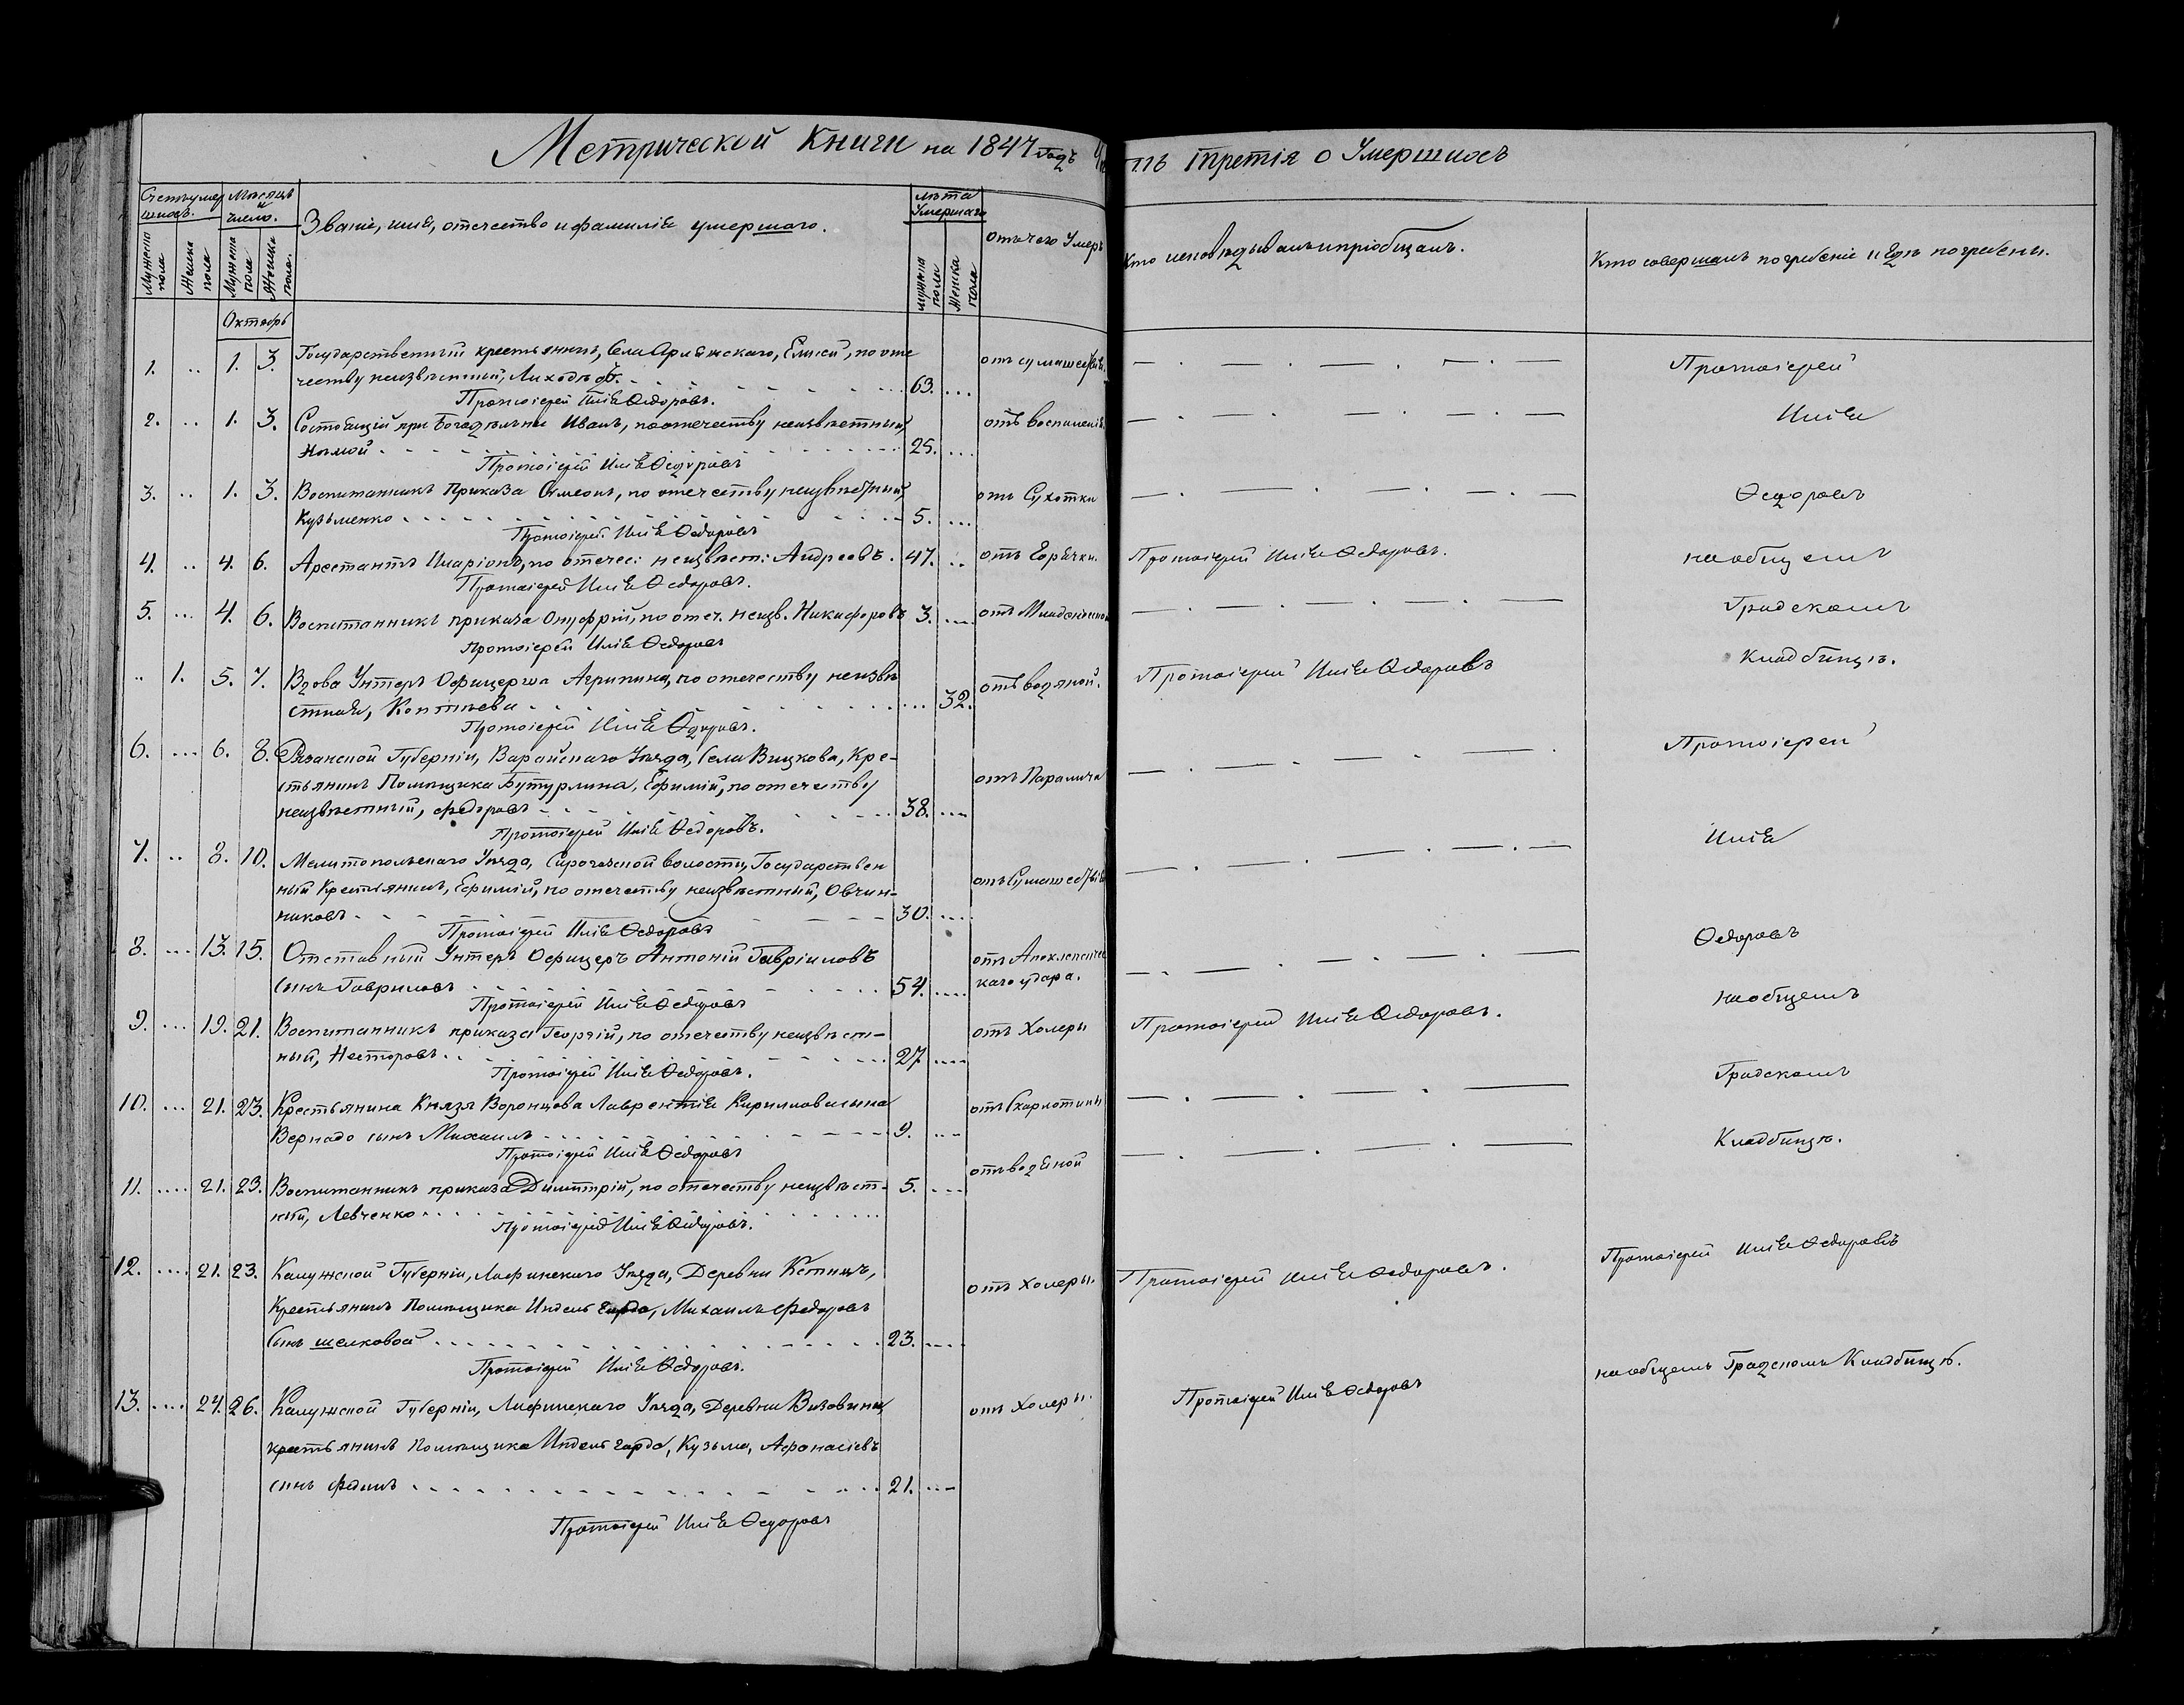 Метрической Книги на 1847 Годъ Часть третія о Умершихъ
Счетъ умершихъ.
Мѣсяцъ и число.
Званіе, имя, отечество и фамилія умершаго.
Лѣта Умершаго
отъ чего Умеръ
Кто исповѣдывалъ и пріобщалъ.
Кто совершалъ погребеніе и гдѣ погребены.
Мужеска пола
Женска пола
Мужеска пола
Женска пола.
мужеска пола
Женска пола
Октябрь
1. .. 1. 3. Государственный крестьянинъ, Села , Елисей, по оте
честву неизвѣстный, Лиходѣдъ. 63. ... отъ сумашествія — . — . — . — . —
Протоіерей Илія Ѳедоровъ.
Протоіерей
2. .. 1. 3. Состоящій при Богадѣльни Иванъ, по отечеству неизвѣстный,
Нѣмой 25. ... отъ воспаленія — . — . — . — . —
Протоіерей Илія Ѳедоровъ
Илія
3. .. 1. 3. Воспитанникъ Приказа Симеонъ, по отечеству неизвѣстный,
Кузьменко 5. ... отъ Сухотки — . — . — . — . —
Протоіерей Илія Ѳедоровъ
Ѳедоровъ
4. .. 4. 6. Арестантъ Иларіонъ, по отечес: неизвѣст: Андреевъ. 47. .. отъ Горячки. Протоіерей Илія Ѳедоровъ.
Протоіерей Илія Ѳедоровъ.
на общемъ
5. ... 4. 6. Воспитанникъ приказа Онуфрій, по отеч. неизв. Никифоровъ 3. ... отъ Младенческой — . — . — . — . —
Протоіерей Илія Ѳедоровъ
Градскомъ
.. 1. 5. 7. Вдова Унтеръ Офицерша Агрипина, по отечеству неизвѣ
стная, Коптѣева ... 32. отъ водяной. Протоіерей Илія Ѳедоровъ
Протоіерей Илія Ѳедоровъ.
Кладбищѣ.
6. ... 6. 8. Рязанской Губерніи, Уѣзда, Села , Кре-
стьянинъ Помѣщика Бутурлина, Ефимій, по отечеству
неизвѣстный, Федоровъ 38. ... отъ Паралича — . — . — . — .
Протоіерей Илія Ѳедоровъ.
Протоіерей
7. .. 8. 10. Мелитопольскаго Уѣзда, волости, Государствен
ный Крестьянинъ, Ефимій, по отечеству неизвѣстный, Овчин-
никовъ 30. .... отъ Сумашествія — . — . — . — . —
Протоіерей Илія Ѳедоровъ
Илія
8. ... 13. 15. Отставный Унтеръ Офицеръ Антоній Гавріиловъ
сынъ Гавриловъ 54. .... отъ Апоплексичес
каго удара. — . — . — . — . —
Протоіерей Илія Ѳедоровъ
Ѳедоровъ
9. ... 19. 21. Воспитанникъ приказа Георгій, по отечеству неизвѣст-
ный, Несторовъ 27 .... отъ Холеры Протоіерей Илія Ѳедоровъ.
Протоіерей Илія Ѳедоровъ.
на общемъ
10. ... 21. 23. Крестьянина Князя Воронцова Лаврентія Кирилова сына
Вернадо сынъ Михаилъ 9. ... отъ Скарлотины — . — . — . —
Протоіерей Илія Ѳедоровъ
Градскомъ
11. .... 21. 23. Воспитанникъ приказа Димитрій, по отечеству неизвѣст-
ный, Левченко 5. ... отъ водяной — . — . — . —
Протоіерей Илія Ѳедоровъ.
Кладбищѣ.
12. .... 21. 23. Калужской Губерніи, Уѣзда, Деревни ,
Крестьянинъ Помѣщика , Михаилъ Федоровъ
сынъ шелковой 23. .... отъ Холеры. Протоіерей Илія Ѳедоровъ.
Протоіерей Илія Ѳедоровъ.
Протоіерей Илія Ѳедоровъ
13. .... 24. 26. Калужской Губерніи, Уѣзда, Деревни ,
крестьянинъ помѣщика , Кузьма, Афонасіевъ
сынъ 21. ... отъ Холеры. Протоіерей Илія Ѳедоровъ
на общемъ Градскомъ Кладбищѣ.
Протоіерей Илія Ѳедоровъ